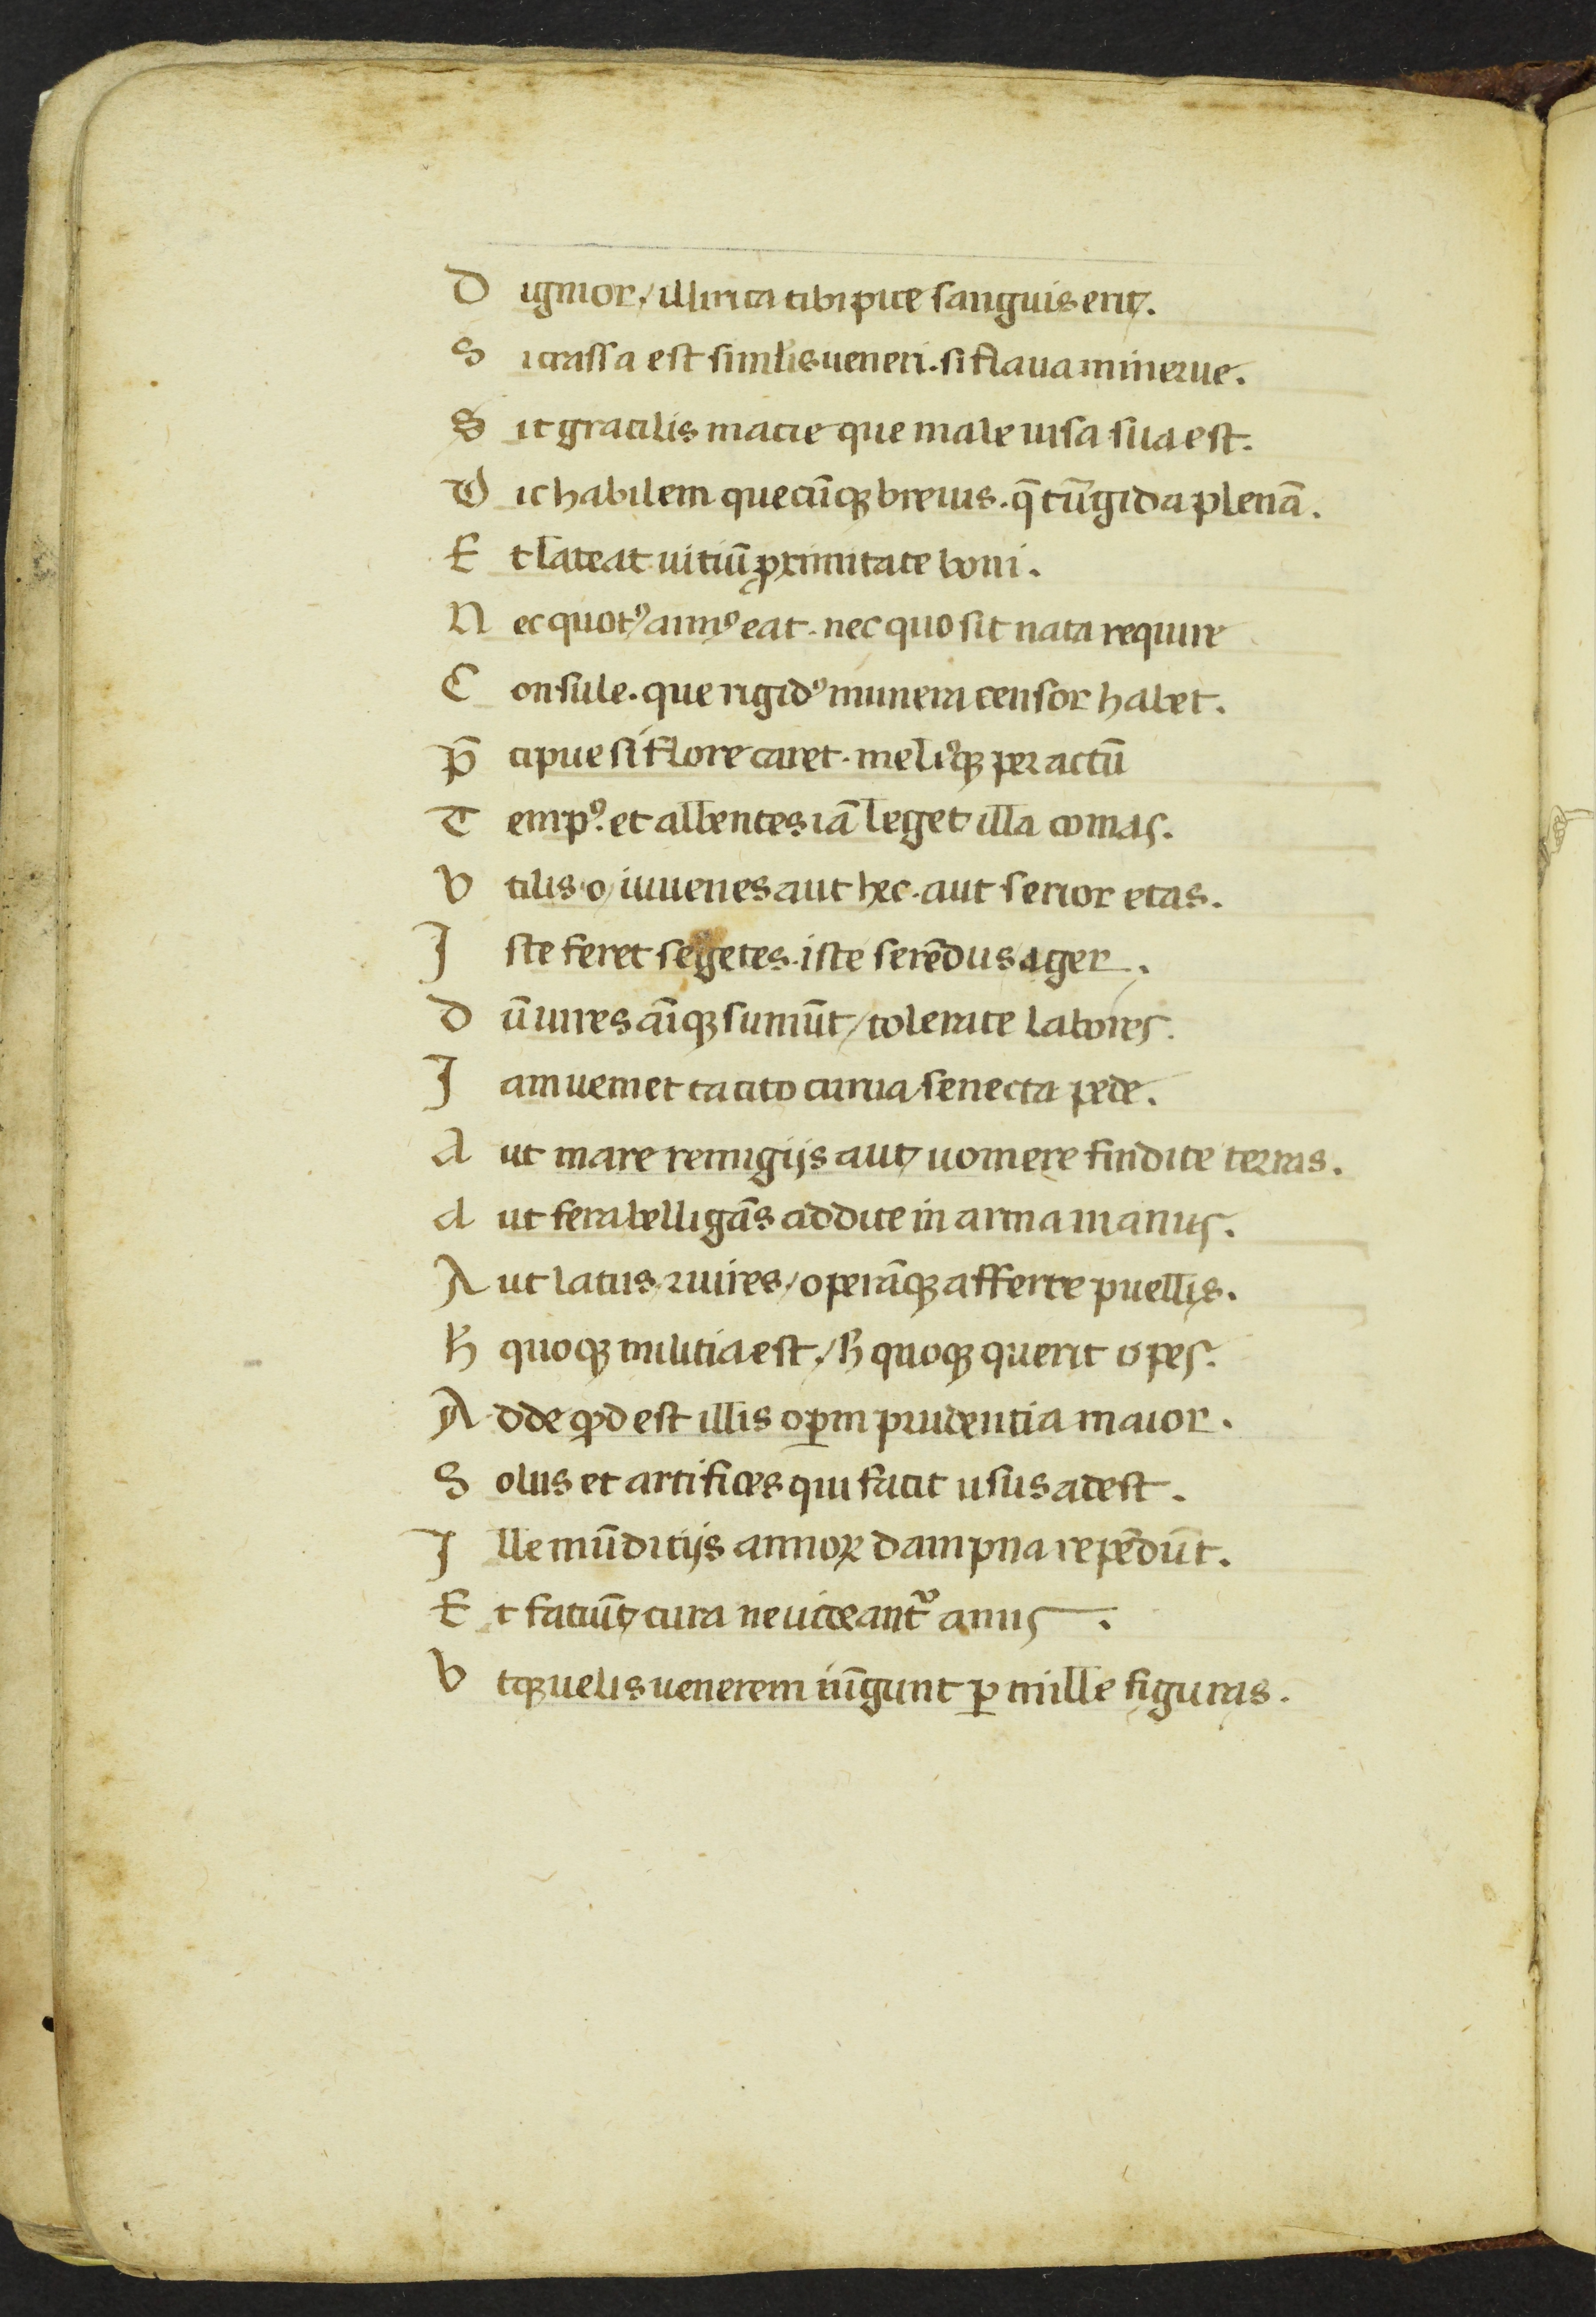 D ignior / illirica tibi pice sanguis erit.
S i crassa est similis ueneri. si flaua minerue.
S it gracilis macie que male uisa sua est.
D ic habilem quecũqꝫ breuis. q̃ tũgida plenã.
E t lateat uitiũ ꝓximitate boni.
N ec quotꝰ annꝰ eat. nec quo sit nata require
C onsule. que rigidꝰ munera censor habet.
P̃ cipue si flore caret. meliꝰqꝫ peractũ
T empꝰ. et albentes iã leget illa comas.
V tilis o iuuenes aut hec. aut serior etas.
I ste feret segetes. iste serẽdus ager.
D ũ uires ãiqꝫ sumũt / tolerate labores.
I am ueniet tacito curua senecta pede.
A ut mare remigijs aut uomere findite terras.
A ut fera belligãs addite in arma manus.
A ut latus / ⁊ uires / operãqꝫ afferte puellis.
H̃ quoqꝫ militia est / h̃ quoqꝫ querit opes.
A dde qđ est illis oꝑm prudentia maior.
S olus et artifices qui facit usus adest.
I lle mũditijs annoꝝ dampna repẽdũt.
E t faciũt cura ne uideantᷣ anus.
V tqꝫ uelis uenerem iũgunt ꝑ mille figuras.